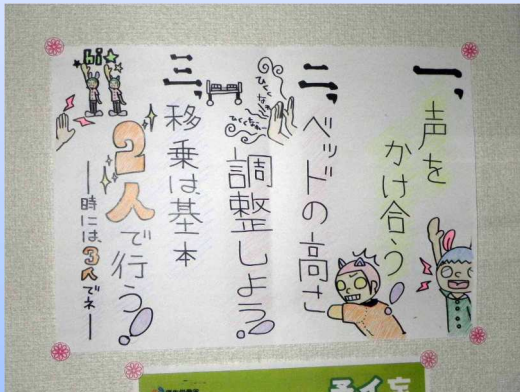 一、
声を
かけ合う!
二、
ベッドの高さ
調整しよう!
三、
移乗は基本
2人で行う!
―時には、3人でネ―
hi